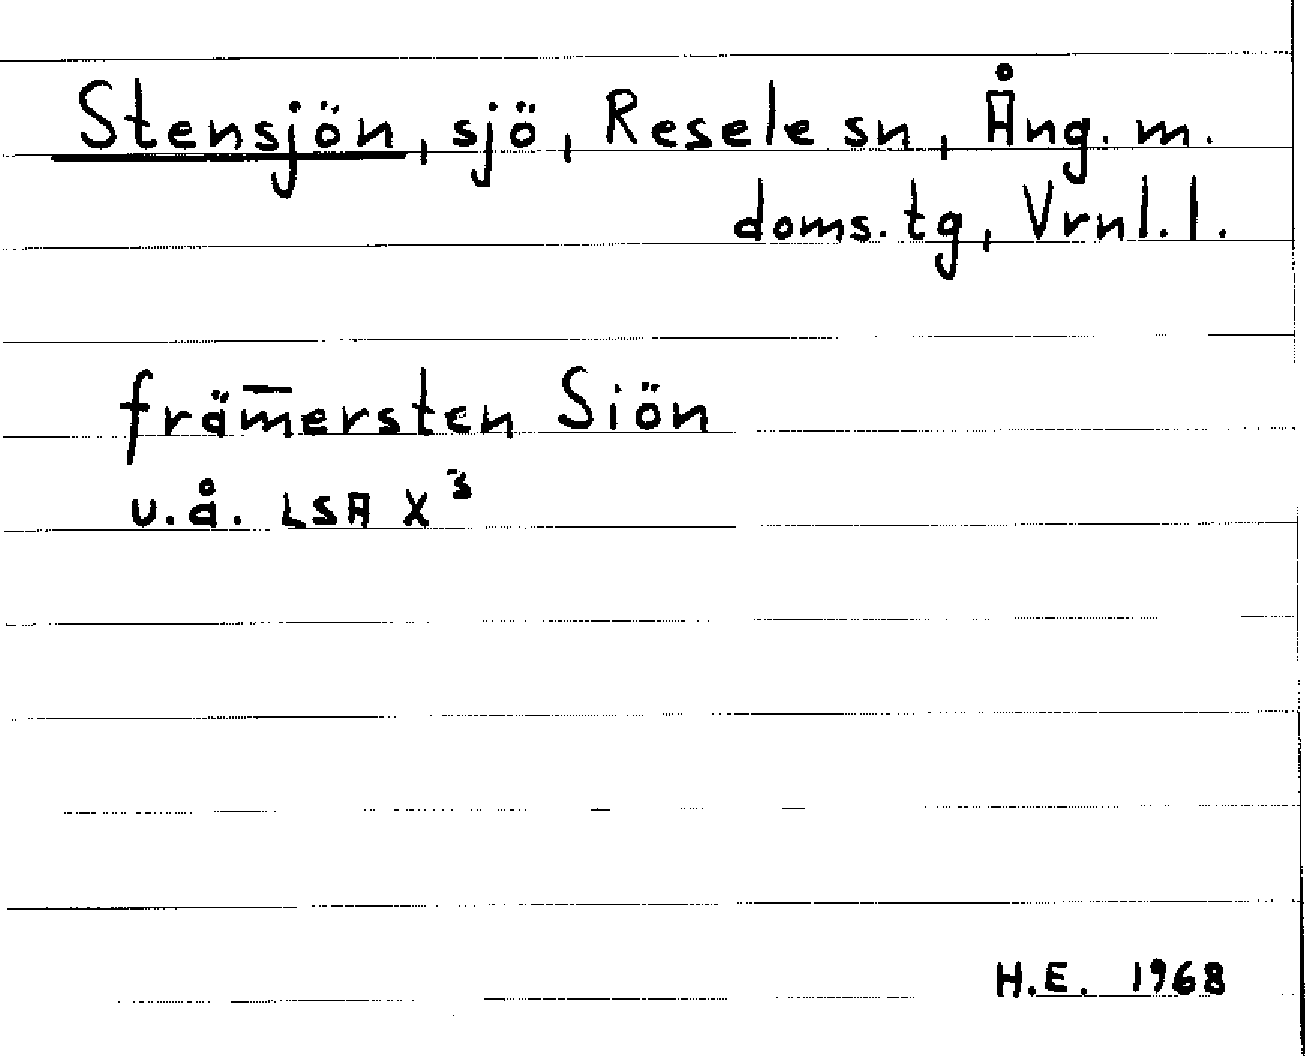 Stensjön, sjö, Resele sn, Ång. m.
doms. tg, Vrnl. l.
främ̅ersten Siön
u.å. LSA X³
H.E. 1968